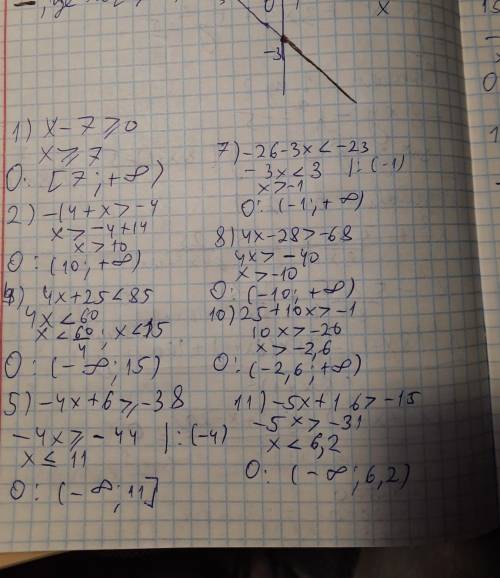 0
1
x
-3
1) x - 7 ⩾ 0
x ⩾ 7
О: [7; +∞)
2) -14 + x > -4
x > -4 + 14
x > 10
О: (10; +∞)
4) 4x + 25 < 85
4x < 60
x < 60/4; x < 15
О: (-∞; 15)
5) -4x + 6 ⩾ -38
-4x ⩾ -44 | : (-4)
x ≤ 11
О: (-∞; 11]
7) -26 - 3x < -23
-3x < 3 | : (-1)
x > -1
О: (-1; +∞)
8) 4x - 28 > -68
4x > -40
x > -10
О: (-10; +∞)
10) 25 + 10x > -1
10x > -26
x > -2,6
О: (-2,6; +∞)
11) -5x + 16 > -15
-5x > -31
x < 6,2
О: (-∞; 6,2)
15